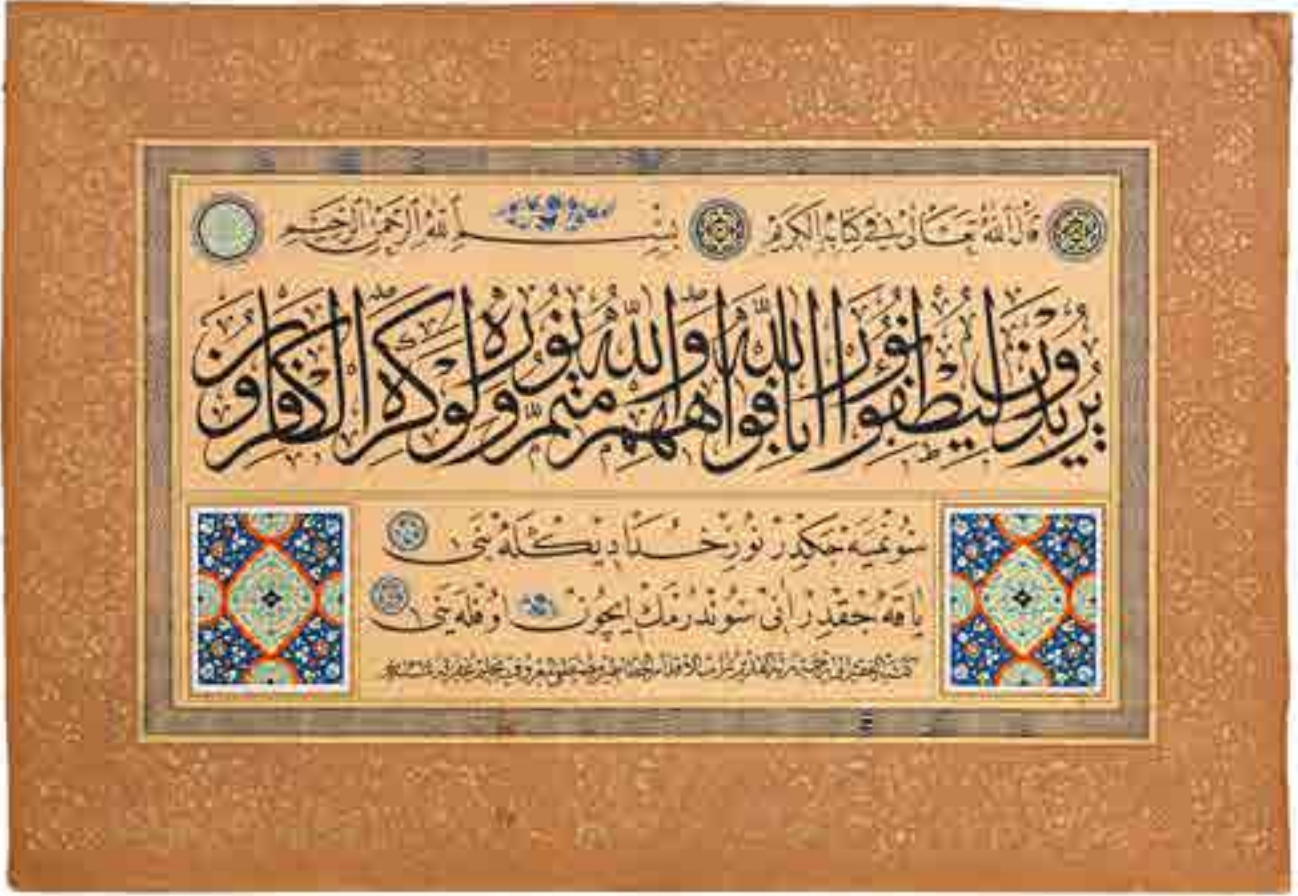 قال الله تعالى في كتابه الكريم بسم الله الرحمن الرحيم
يُرِيدُونَ لِيُطْفِؤُا نُورَ اللّٰهِ بِاَفْوَاهِهِمْ وَاللّٰهُ مُتِمُّ نُورِهِ وَلَوْ كَرِهَ الْكَافِرُونَ
سونميه جكدر نور خدا ديكله بنى
ياقه جقدر انى سوندرمك ايچون اوفله ينى
كتبه الفقير